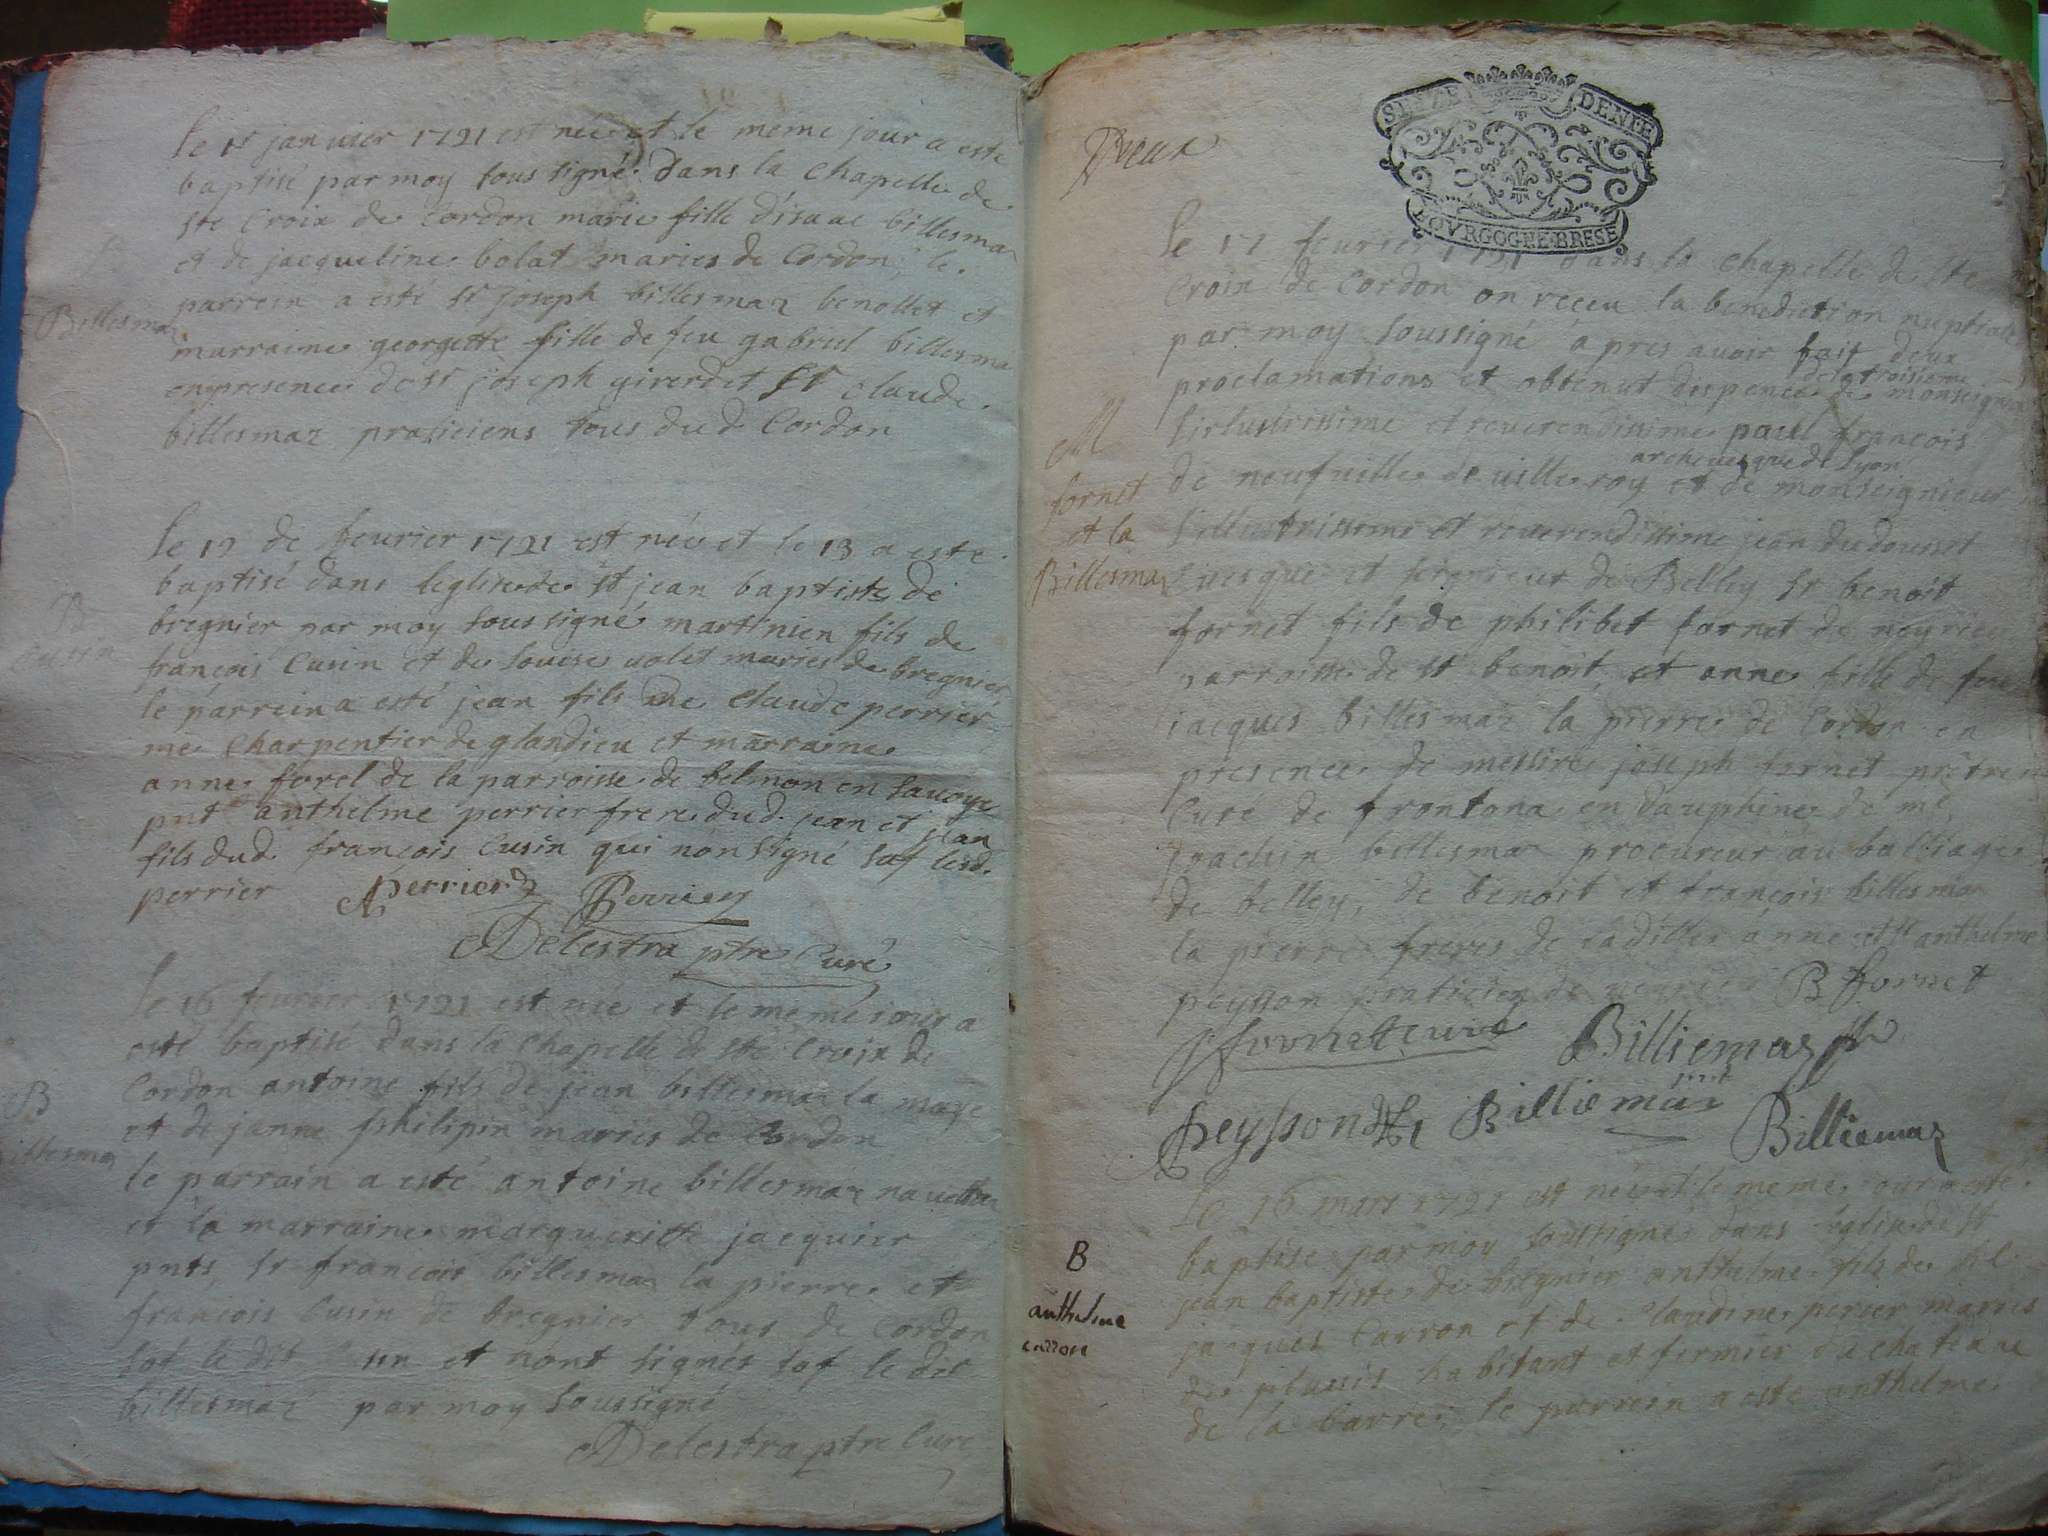 le 1r januier 1721 est née et le meme jour a este
baptisé par moy soussigné dans la chapelle de
ste Croix de Cordon marie fille d'isaac billesmaz
et de jacqueline bolat maries de Cordon, le
parrein a esté sr joseph billesmaz benollet et
Billesmaz
marraine georgette fille de feu gabriel billesma
en presence de sr joseph girerdet sr claude
billesmaz praticiens tous dud Cordon
le 12 de feurier 1721 est néo et le 13 a este
baptisé dans leglise de st jean baptiste de
B
Cusin
bregnier par moy soussigné martinien fils de
françois Cusin et de louise volet maries de bregnier
le parrein a esté jean fils me Claude perrier
me Charpentier de glandieu et marraine
anne forel de la parroisse de belmon en sauoye
pnt anthelme perrier frere dud jean et jean
fils dud françois Cusin qui non signé sof lesd
perrier A perrier Perrier
Delestra ptre Curé
le 16 feurier 1721 est née et le meme jour a
esté baptisé dans la chapelle de ste Croix de
B
illesmaz
Cordon antoine fils de jean billesmaz la
et de janne philipin maries de Cordon
le parrain a esté antoine billesmaz
et la marraine margueritte jacquier
pnts sr françois billesmaz la pierre et
françois Cusin de bregnier tous de Cordon
sof le dit et nont signés sof le dit
billesmaz par moy soussigné
Delestra ptre Curé
SEIZE DENIE
BOVRGOGNE BRESE
le 17 feurier 1721 dans la chapelle de ste
Croix de Cordon on receu la benediction nuptiale
par moy soussigné apres auoir fait deux
proclamations et obtenut dispence de la troisieme de monseigneur
M
fornet
et la
Billesmaz
lirlustrissime et reuerendissime paul françois
de neufuille de uilleroy archeuesque de Lyon et de monseigneur
lillustrissime et reuerendissime jean dudousset
euesque et seigneur de Belley sr benoit
fornet fils de philibet fornet de
parroisse de st benoit, et anne fille de feu
jacques billesmaz la pierre de Cordon en
presence de messire joseph fornet prêtre
Curé de frontona en dauphine de me
joachin billesmaz procureur au balliage
de belley, de benoit et françois billesmaz
la pierre freres de ladille anne et sr anthelme
peysson praticien de B fornet
Billiemaz
Peysson Billiemaz
Billiemaz
le 16 mars 1721 est néo et le meme jour a esté
baptisé par moy soussigné dans leglise de st
B
anthelme
carron
jean baptiste de bregnier anthelme fils de
jacques Carron et de Claudine perier maries
du plussis habitant et fermier du chateau
de la barre, le parrein a este anthelme